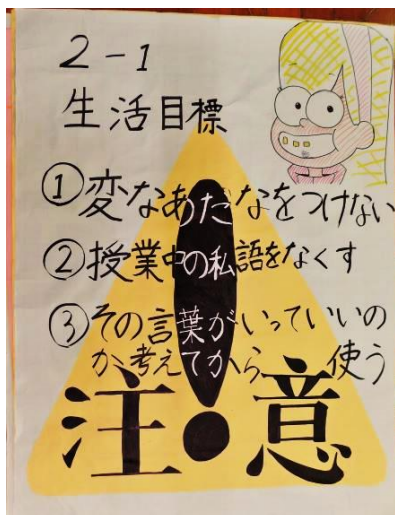 2-1
生活目標
①変なあだなをつけない
②授業中の私語をなくす
③その言葉がいっていいの
か考えてから 使う
注意